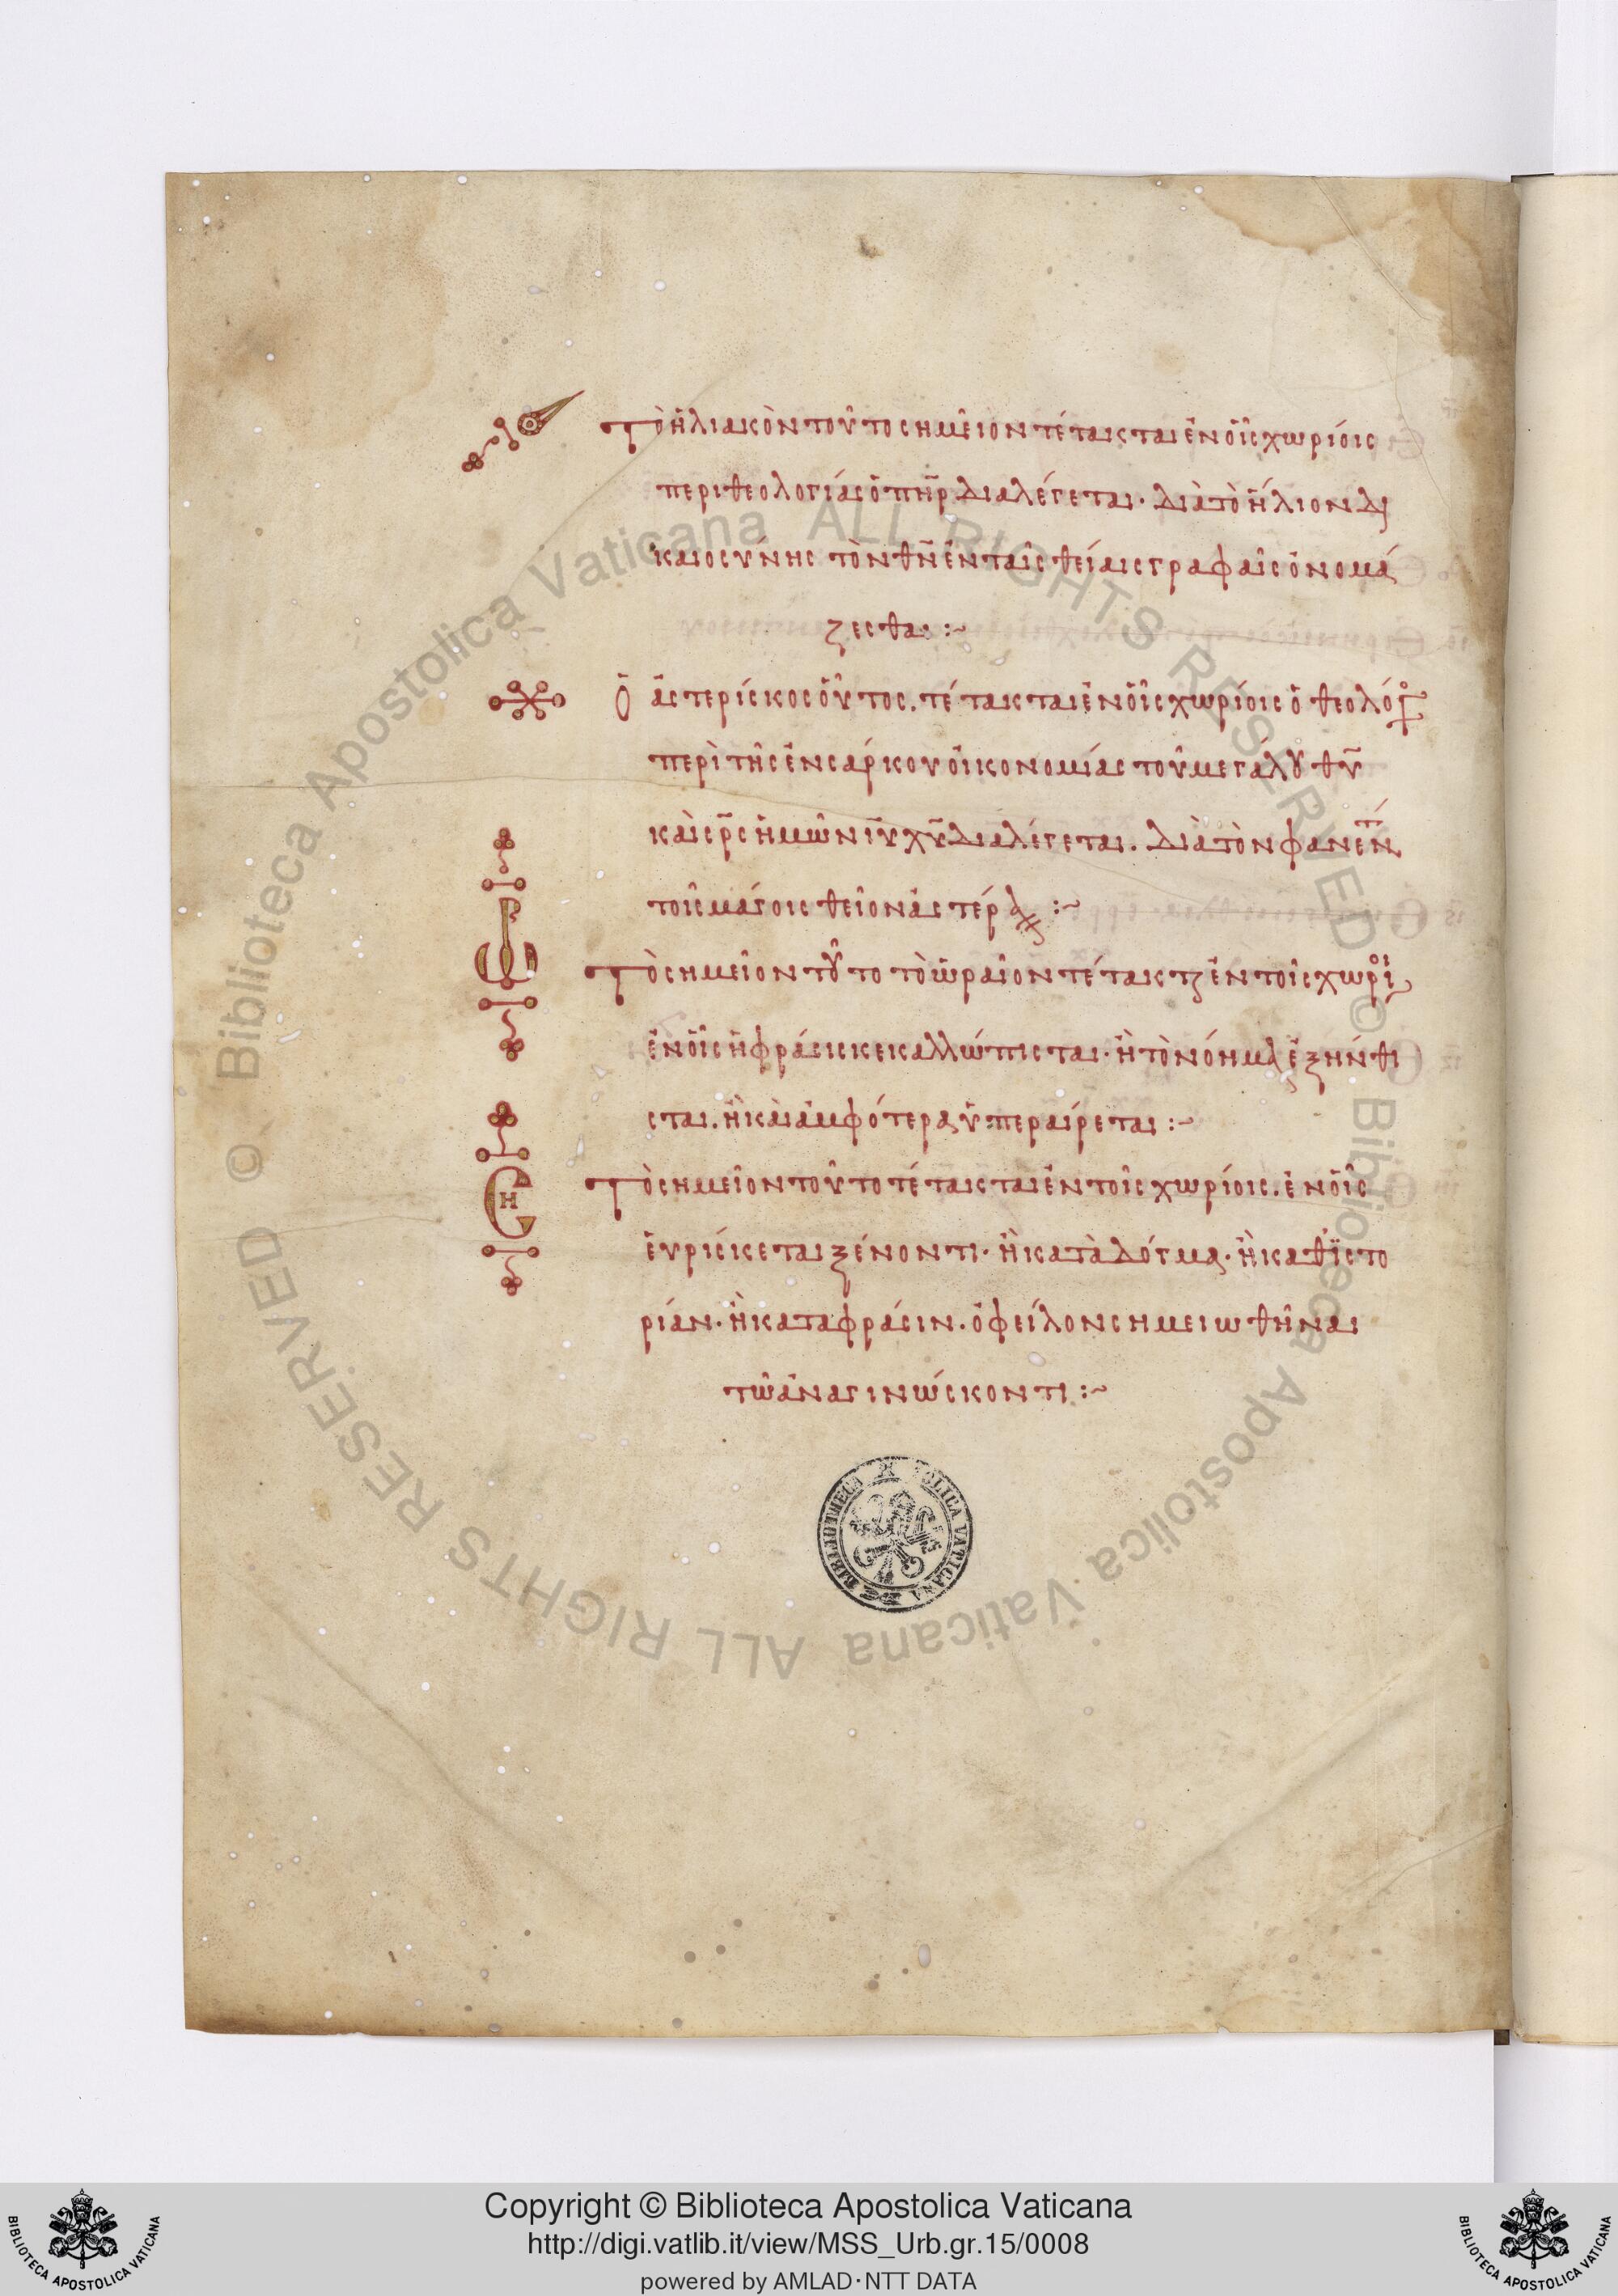 τὸ ἡλιακὸν τοῦτο σημεῖον τέτακται ἐν οἷς χωρίοις
περι θεολογίας ὁ πηρ διαλέγεται· διὰ τὸ ἥλιον δι
καιοσύνης τὸν θν ἐν ταῖς θείαις γραφαῖς ὀνομά
ζεσθαι :~
ὁ ἀστερίσκος οὗτος. τέτακται ἐν οἷς χωρίοις ὁ θεολό
περὶ τῆς ἐνσάρκου οἰκονομίας τοῦ μεγάλου θυ
καὶ σρς ἡμῶν ιυ χυ διαλέγεται. διὰ τὸν φανεν
τοῖς μάγοις θεῖον ἀστέρα :~
τὸ σημεῖον τοῦτο τὸ ὡραῖον τέτακται ἐν τοῖς χωρί
ἐν οἷς ἡ φράσις κεκαλλώπισται· ἢ τὸ νόημα ἐξήνθι
σται. ἢ καὶ ἀμφότερα ὑπεραίρεται :~
CH
τὸ σημεῖον τοῦτο τέτακται ἐν τοῖς χωρίοις. ἐν οἷς
εὑρίσκεται ξένον τι· ἢ κατὰ δόγμα· ἢ καθ ἱστο
ρίαν· ἢ κατα φράσιν. ὀφεῖλον σημειωθῆναι
τῶ ἀναγινώσκοντι :~
BIBLIOTHECA APOSTOLICA VATICANA
© Biblioteca Apostolica Vaticana ALL RIGHTS RESERVED © Biblioteca Apostolica Vaticana ALL RIGHTS RESERVED
Copyright © Biblioteca Apostolica Vaticana
http://digi.vatlib.it/view/MSS_Urb.gr.15/0008
powered by AMLAD·NTT DATA
BIBLIOTECA APOSTOLICA VATICANA
BIBLIOTECA APOSTOLICA VATICANA